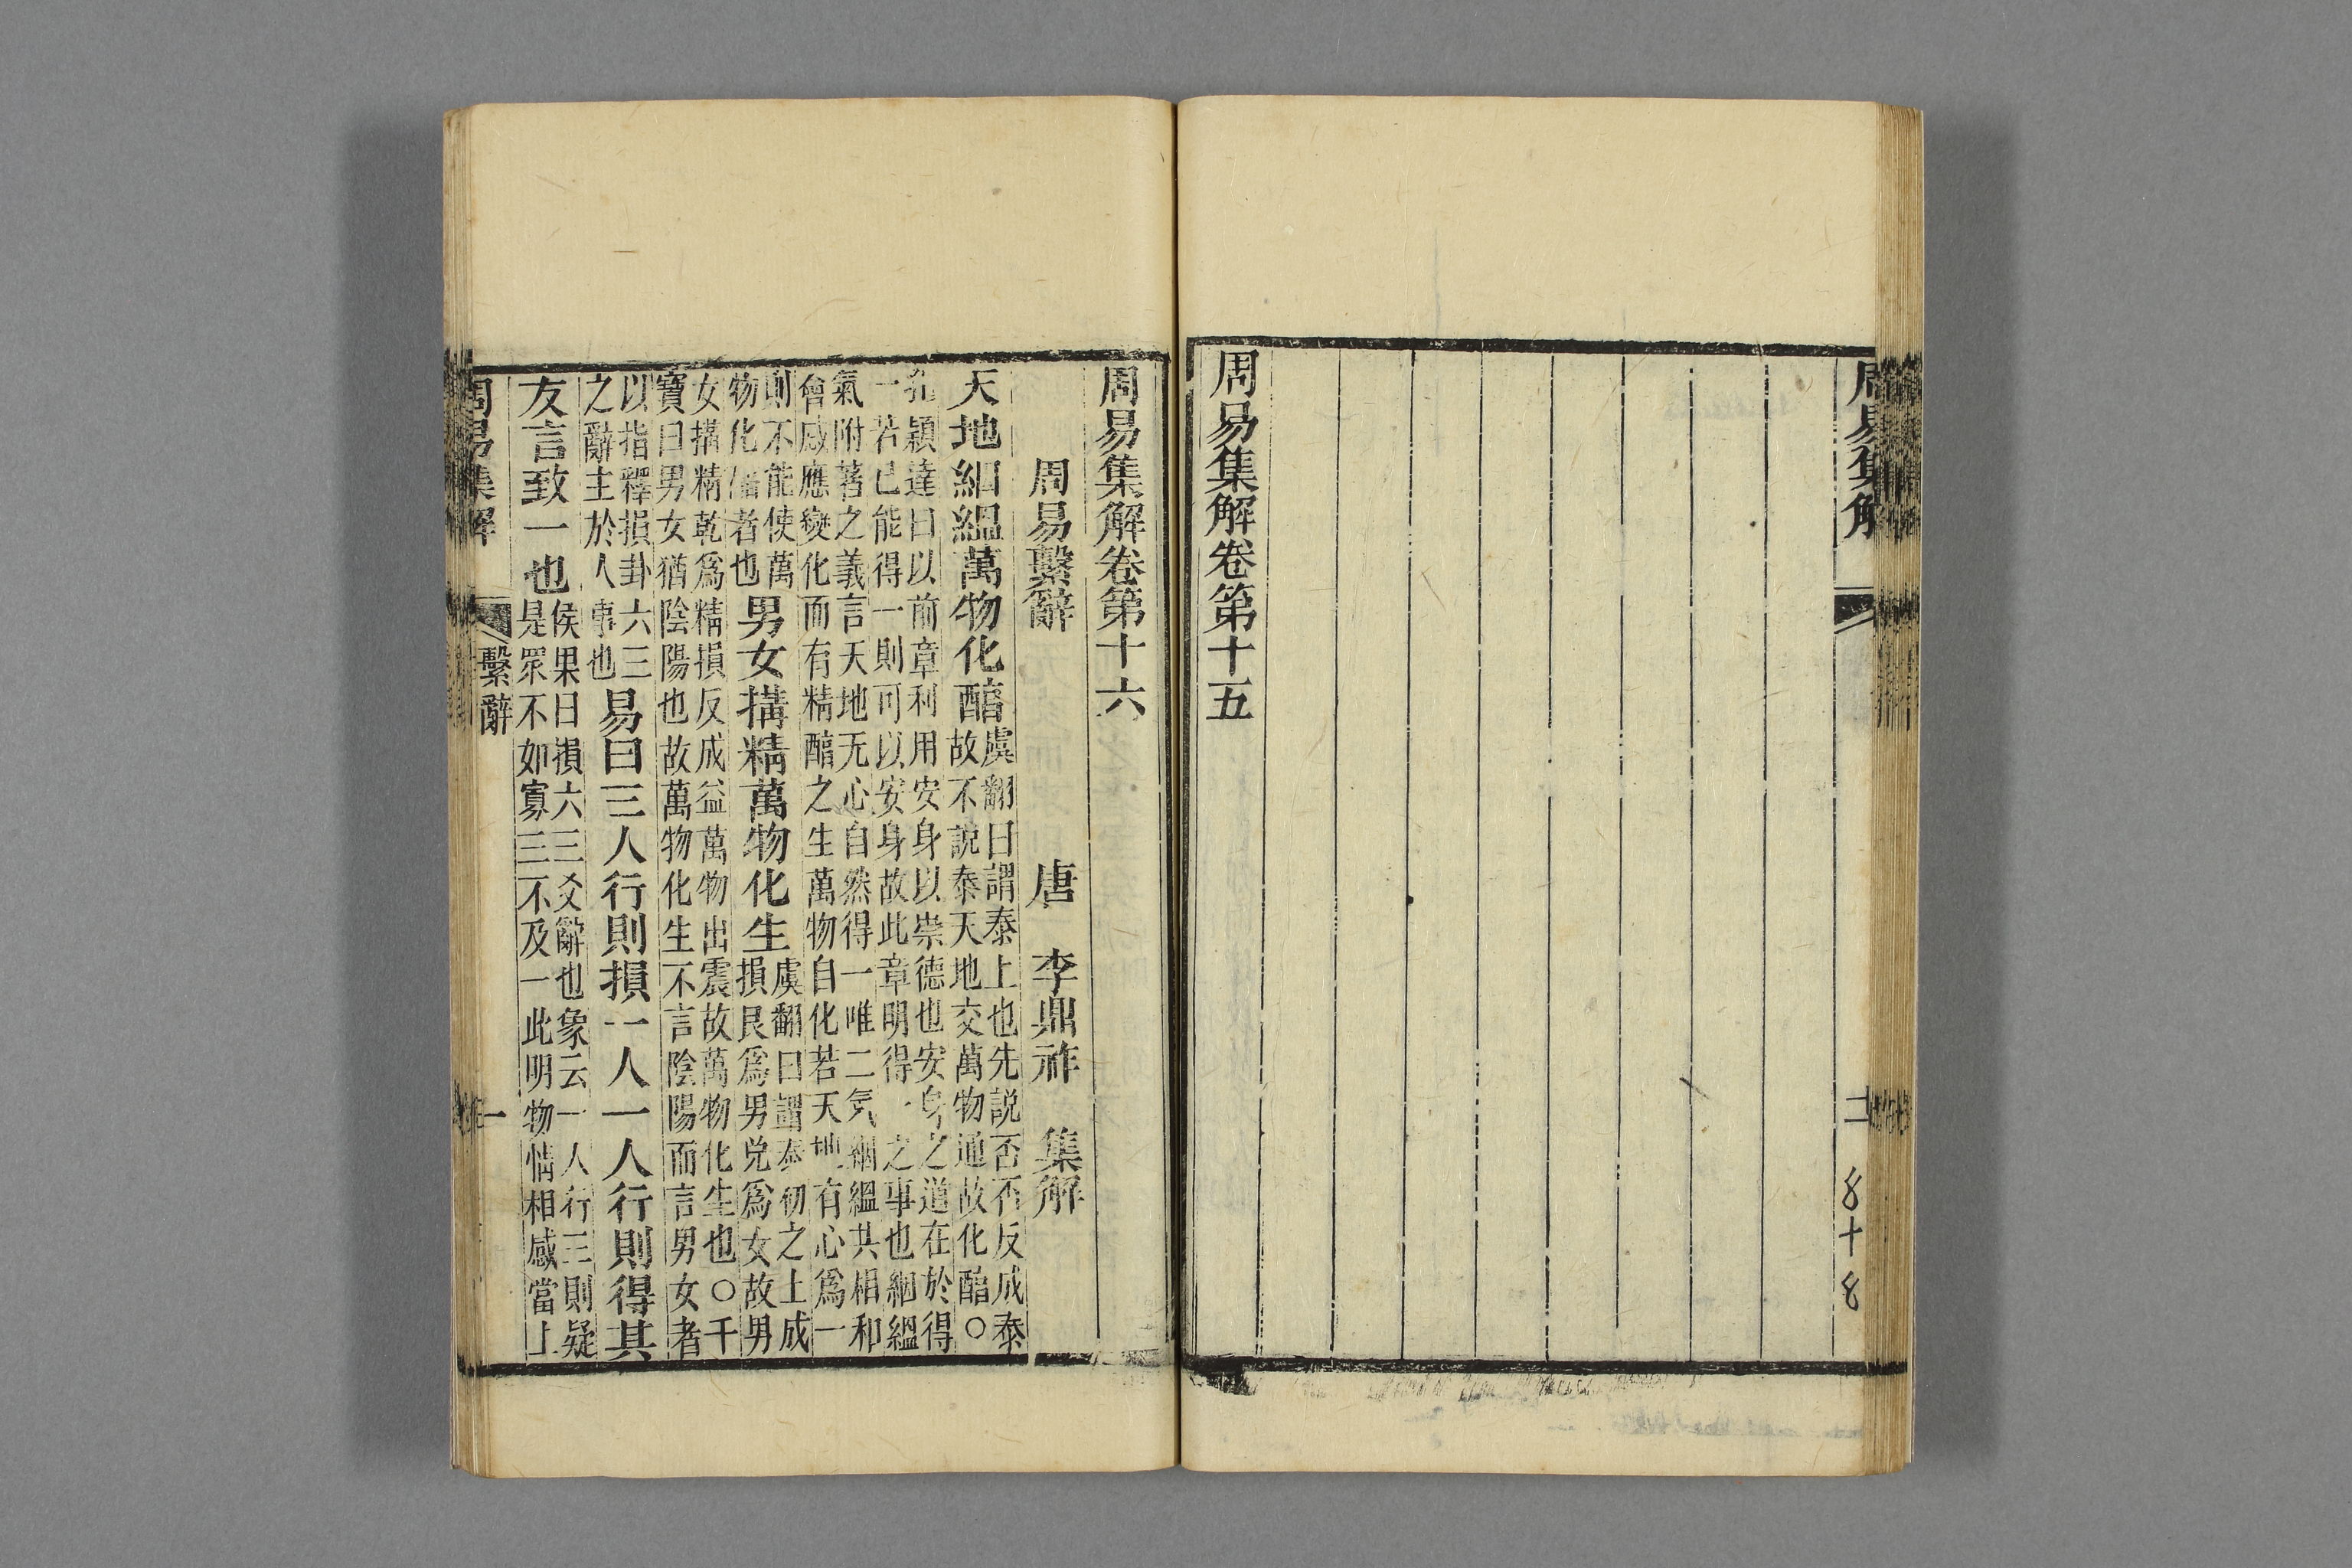 周易集解
二
周易集解卷第十五
周易集解卷第十六
周易繫辭 唐 李鼎祚 集解
天地絪縕萬物化醕
虞翻曰謂泰上也先説否否反成泰
故不説泰天地交萬物通故化醕○
孔穎達曰以前章利用安身以崇德也安身之道在於得
一若已能得一則可以安身故此章明得一之事也絪縕
氣附著之義言天地无心自然得一唯二気絪縕共相和
會感應變化而有精醕之生萬物自化若天地有心爲一
則不能使萬
物化醕者也
男女搆精萬物化生
虞翻曰謂泰初之上成
損艮爲男兌爲女故男
女搆精乾爲精損反成益萬物出震故萬物化生也○千
寶曰男女猶陰陽也故萬物化生不言陰陽而言男女者
以指釋損卦六三
之辭主於人事也
易曰三人行則損一人一人行則得其
友言致一也
侯果曰損六三爻辭也象云一人行三則疑
是眾不如寡三不及一此明物情相感當上
周易集解
繫辭
一